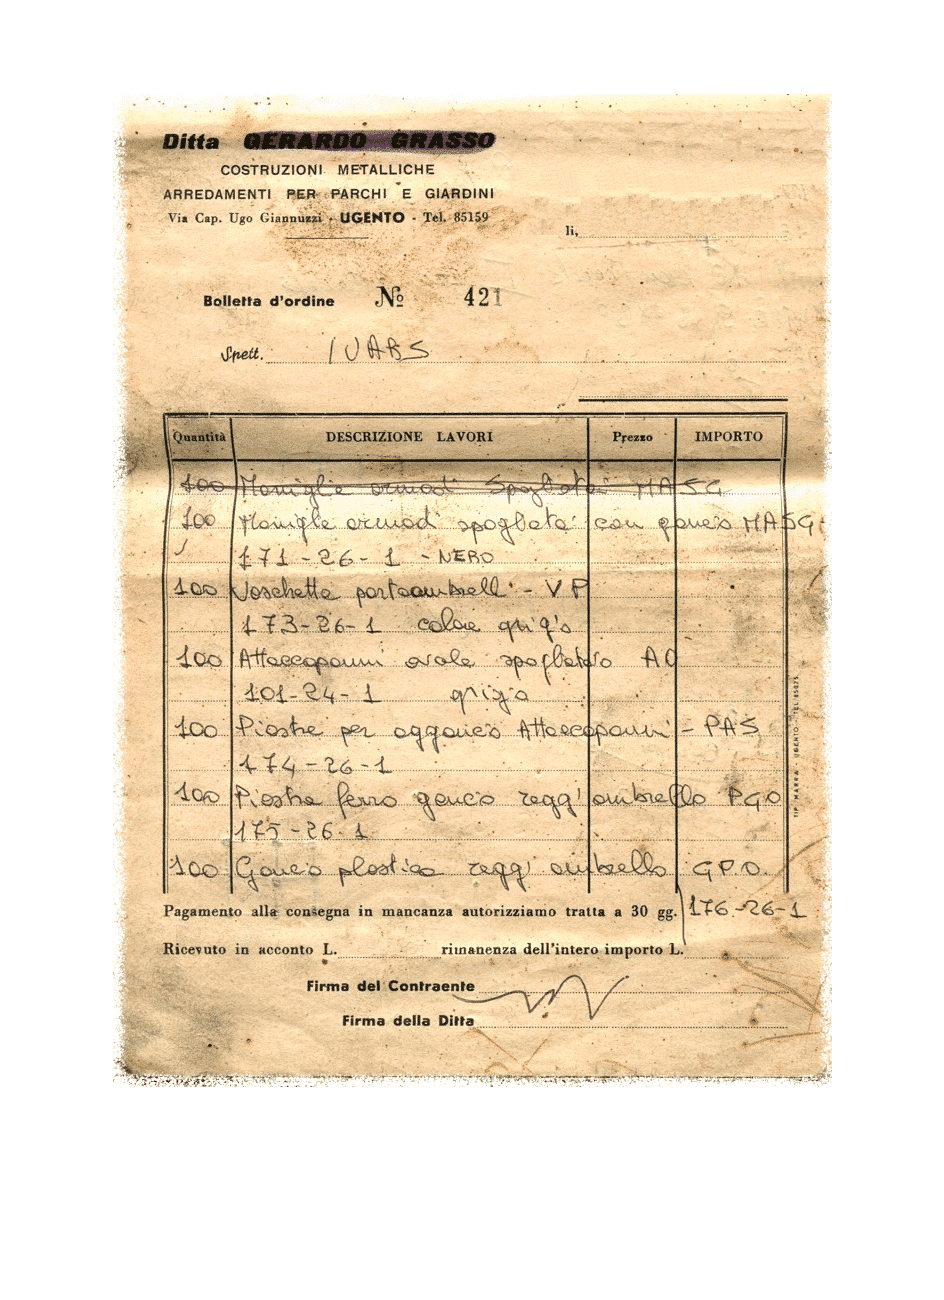 Ditta GERARDO GRASSO
COSTRUZIONI METALLICHE
ARREDAMENTI PER PARCHI E GIARDINI
Via Cap. Ugo Giannuzzi - UGENTO - Tel. 85159
li,
Bolletta d'ordine № 421
Spett. IVARS
Quantità DESCRIZIONE LAVORI Prezzo IMPORTO
100 Maniglie armadi Spogliatoi MASG
100 Maniglie armadi spogliatoi con gancio MASG
171-26-1 - NERO
100 Vaschette portaombrelli - VP
173-26-1 colore grigio
100 Attaccapanni ovale spogliatoio AO
101-24-1 grigio
100 Piastre per aggancio Attaccapanni - PAS
174-26-1
100 Piastra ferro gancio reggi ombrello PGO
175-26-1
100 Gancio plastica reggi ombrello G.P.O.
176-26-1
Pagamento alla consegna in mancanza autorizziamo tratta a 30 gg.
Ricevuto in acconto L. rimanenza dell'intero importo L.
Firma del Contraente
Firma della Ditta
TIP. MARRA - UGENTO - TEL. 85075